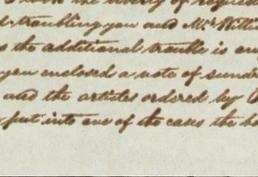 the liberty of reques
troubling you and Mr. Willi
the additional trouble is
you enclosed a note of sundr
and the articles ordered by
put into one of the cases the